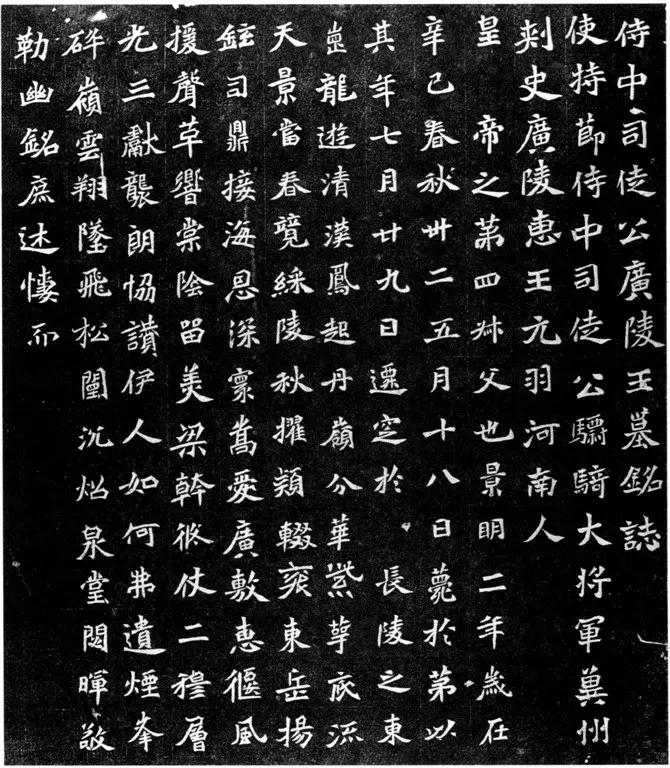 侍中司徒公廣陵王墓銘誌
使持節侍中司徒公驃騎大將軍冀州
刺史廣陵惠王元羽河南人
皇帝之第四叔父也景明二年歲在
辛巳春秋卅二五月十八日薨於第以
其年七月廿九日遷窆於長陵之東
崗龍遊清漢鳳起丹嶺分華紫萼底流
天景當春競綵陵秋擢穎輟袞東岳揚
鉉司鼎接海恩深寰嵩愛廣敷惠偃風
援聲草響棠陰留美梁幹攸仗二穆層
光三獻襲朗協讚伊人如何弗遺煙峯
碎嶺雲翔墜飛松闈沉炤泉堂閟暉敬
勒幽銘庶述悽而